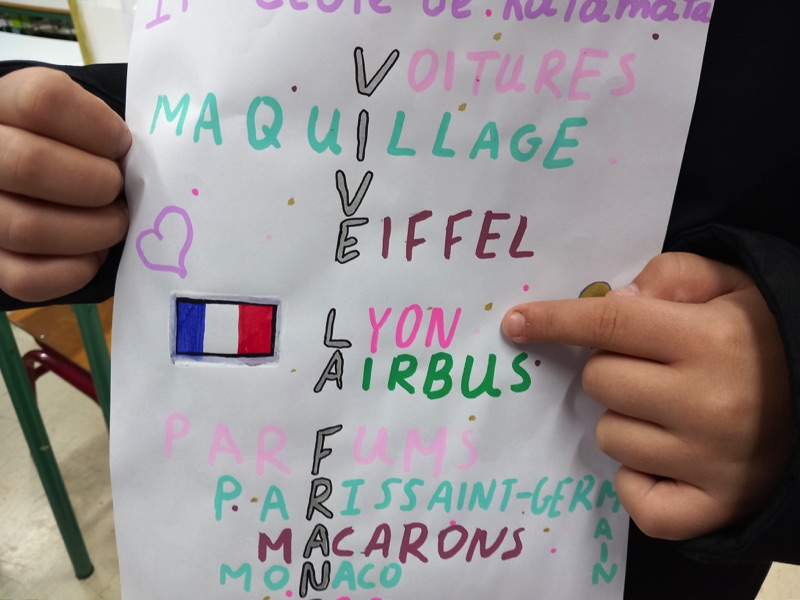 école de Kalamata
VOITURES
MAQUILLAGE
V
EIFFEL
LYON
AIRBUS
PARFUMS
PARISSAINT-GERMAIN
MACARONS
MONACO